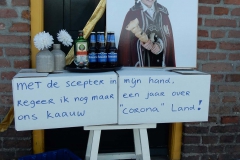 met de scepter in mijn hand,
Regeer ik nog maar een jaar over
ons kaauw "corona" Land!